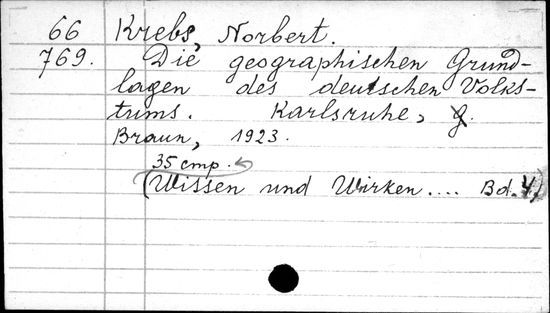 66 Krebs, Norbert.
769. Die geographischen Grund-
lagen des deutschen Volks-
tums. Karlsruhe, G.
Braun, 1923.
35 стр.
(Wissen und Wirken.... Bd. 4)